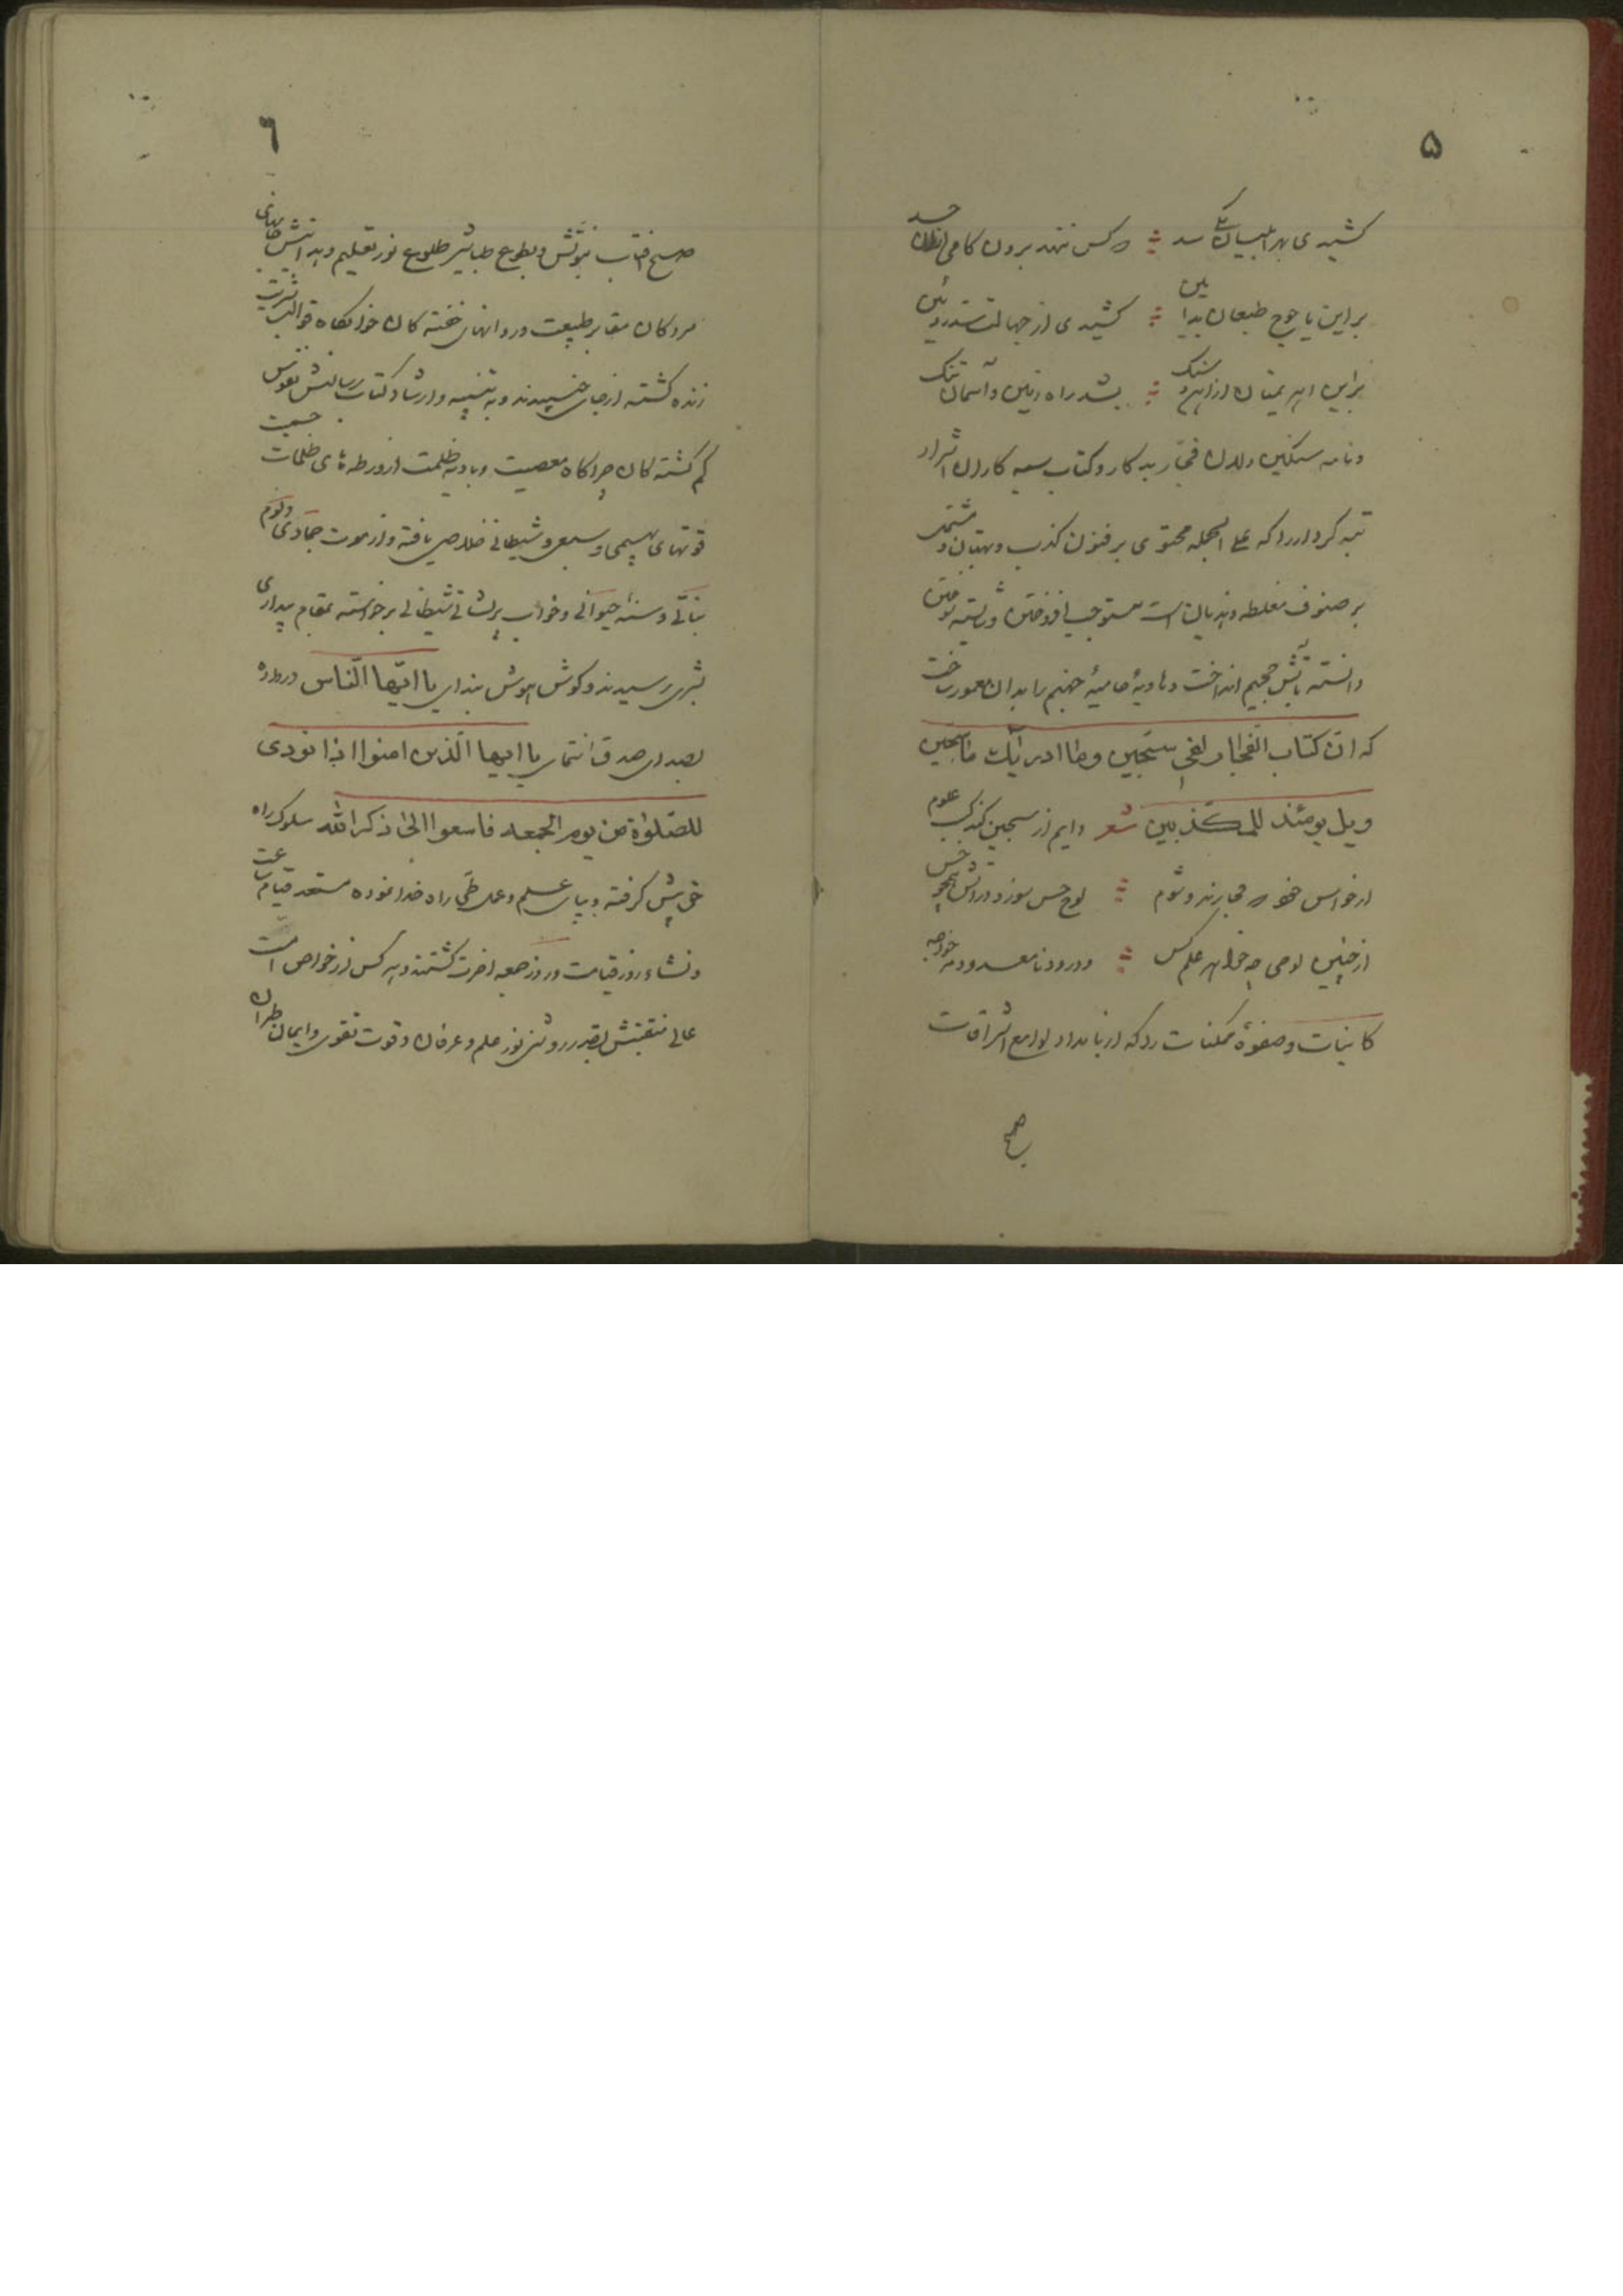 ۵
کشیدی بهر ابلیسان یکی سد که کس ننهد برون کامی ازان حد
بر این یاجوج طبعان بدآیین کشیدی از جهالت سد روئین
براین اهریمنان از آهن و سنک بشد راه زمین و آسمان تنک
و نامه سنکین دلان فجّار بد کار و کتاب سیه کاران اشرار
تبه کردار را که علی الجمله محتوی بر فنون کذب و بهتان و مشتمل
بر صنوف مغلطه و هذیان است مستوجب افروختن و شایسته سوختن
دانسته بآتش جحیم انداخت و هاویهٔ حامیهٔ جهنم را بدان معمور ساخت
که انّ کتاب الفجار لفی سجّین وما ادریک ما سجّین
ویل یومئذ للمکذبین شعر دایم از سجین کند کسب علوم
از خواص خود چه می‌ارزد و شوم لوح حس سوزد در آتش همچو خس
از چنین لوحی چه خواهد علم کس و درود نامعدود مر خواجه
کاینات و صفوهٔ ممکنات را که از بامداد لوامع اشراقات
صبح
۶
صبح افتاب نبوتش و بطلوع طباشیر طلوع نور تعلیم و هدایتش جانهای
مردکان مقابر طبیعت و روانهای خفته کان خوابکاه قوالب بشریت
زنده کشته از جای جنبیدند و به تنبیه و ارشاد کتاب رسالتش نفوس
کم کشته کان چراکاه معصیت و بادیه ظلمت از ورطه های ظلمات جسمیت
قوتهای بهیمی و سبعی و شیطانی خلاصی یافته و از موت جمادی و نوم
نباتی و سنهٔ حیوانی و خواب پریشانی شیطانی برخواسته بمقام بیداری
بشری رسیدند و کوش هوش بندای یا ایّها النّاس در داده
بصدای صدق انتمای یا ایها الّذین امنوا اذا نودی
للصّلوٰة من یوم الجمعه فاسعوا الیٰ ذکر الله سلوک راه
حق پیش کرفته و بپای علم و عمل طی راه خدا نموده مستعد قیام ساعت
و نشاء روز قیامت و روز جمعه اخرت کشتند و هر کس از خواص امت
عالی منقبتش بقدر روشنی نور علم و عرفان و قوت تقوی و ایمان طیران